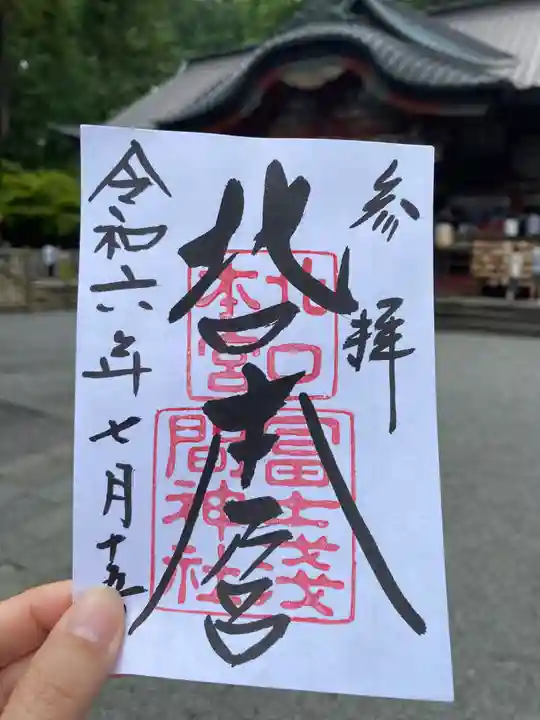 参拝
北口本宮
北口
本宮
冨士浅
間神社
令和六年七月十五